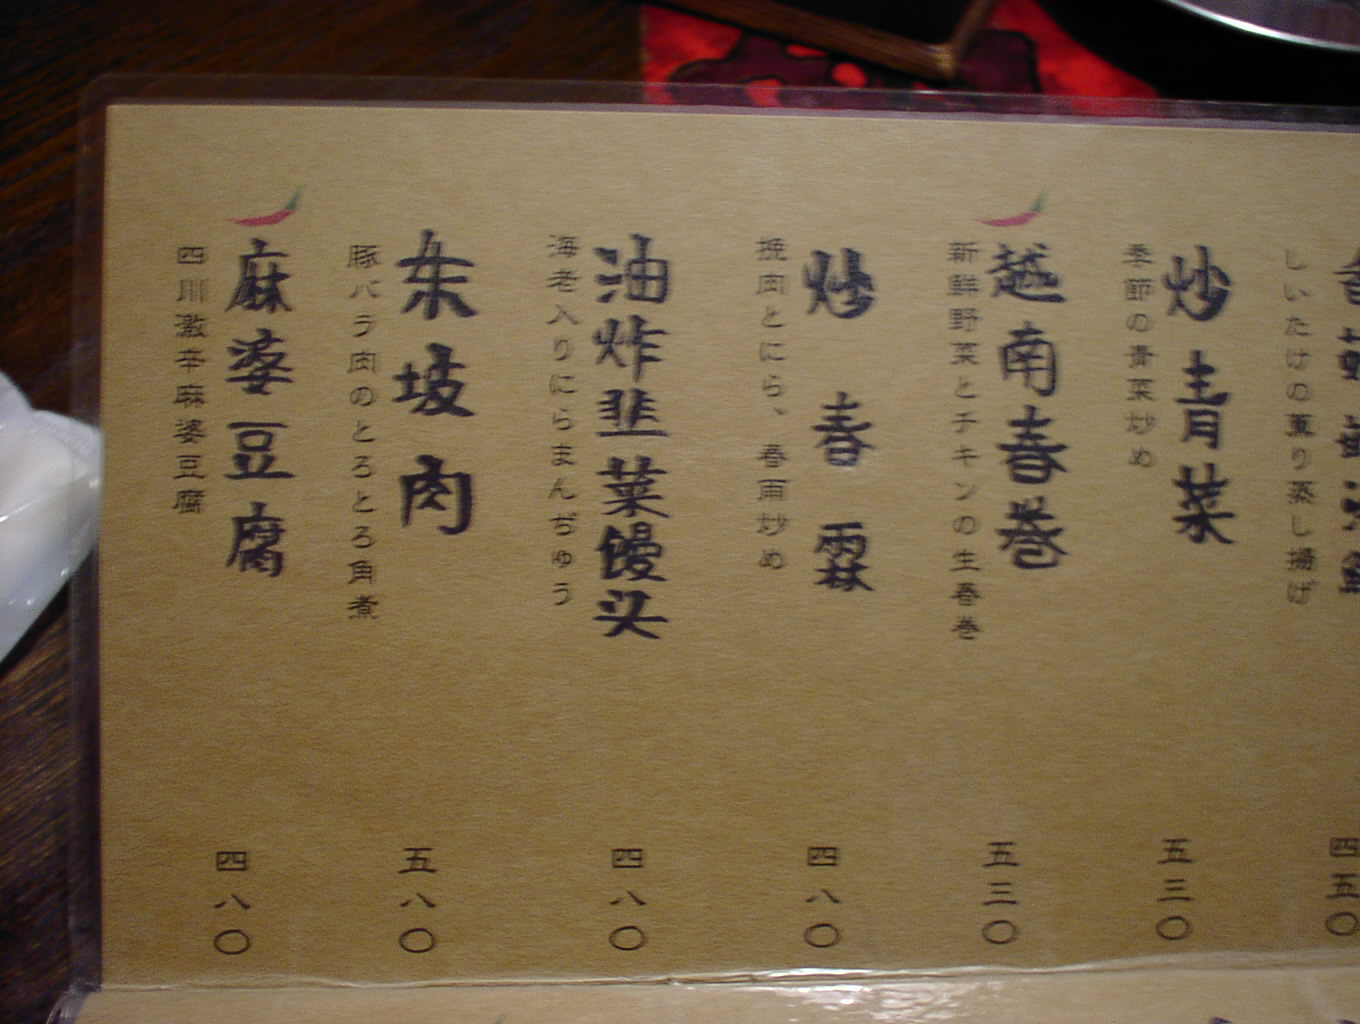 しいたけの薫り蒸し揚げ
四五〇
炒青菜
季節の青菜炒め
五三〇
越南春巻
新鮮野菜とチキンの生春巻
五三〇
炒春霖
挽肉とにら、春雨炒め
四八〇
油炸韭菜馒头
海老入りにらまんぢゅう
四八〇
东坡肉
豚バラ肉のとろとろ角煮
五八〇
麻婆豆腐
四川激辛麻婆豆腐
四八〇